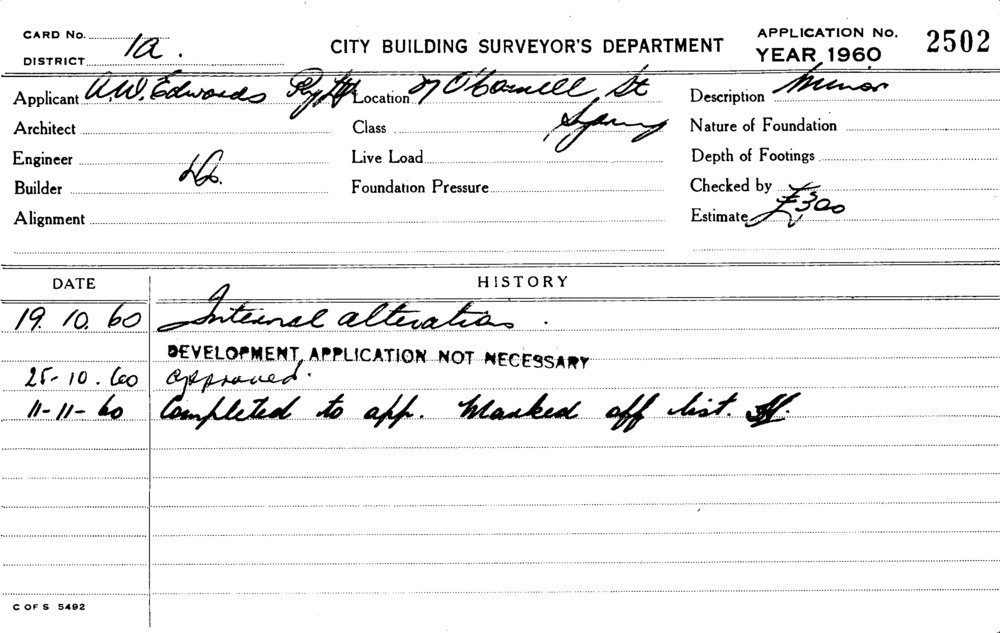 CARD No.
CITY BUILDING SURVEYOR'S DEPARTMENT
APPLICATION No. 2502
YEAR 1960
DISTRICT 1a.
Applicant A.W. Edwards Pty Ltd Location 7 O'Connell St Description Minor
Architect Class Sydney Nature of Foundation
Engineer Live Load Depth of Footings
Builder Do. Foundation Pressure Checked by
Alignment Estimate £300
DATE HISTORY
19.10.60 Internal alterations.
DEVELOPMENT APPLICATION NOT NECESSARY
25-10.60 approved.
11-11-60 Completed to app. Marked off list.
C OF S 5492